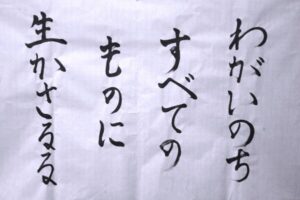 わがいのち
すべての
ものに
生かさるる